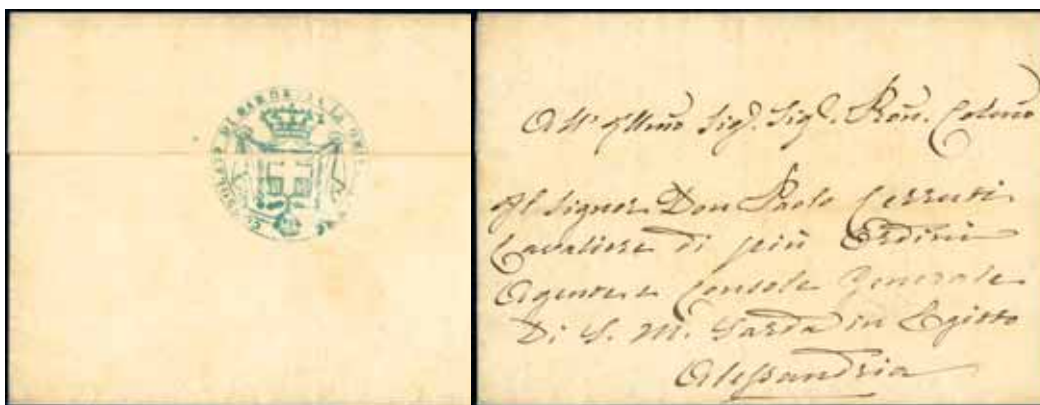 DI SARDA
All' Illmo Sig. Sig. Pron. Colmo
Il Signor Don Paolo Cerruti
Cavaliere di più Ordini
Agente e Console Generale
Di S. M. Sarda in Egitto
Alessandria